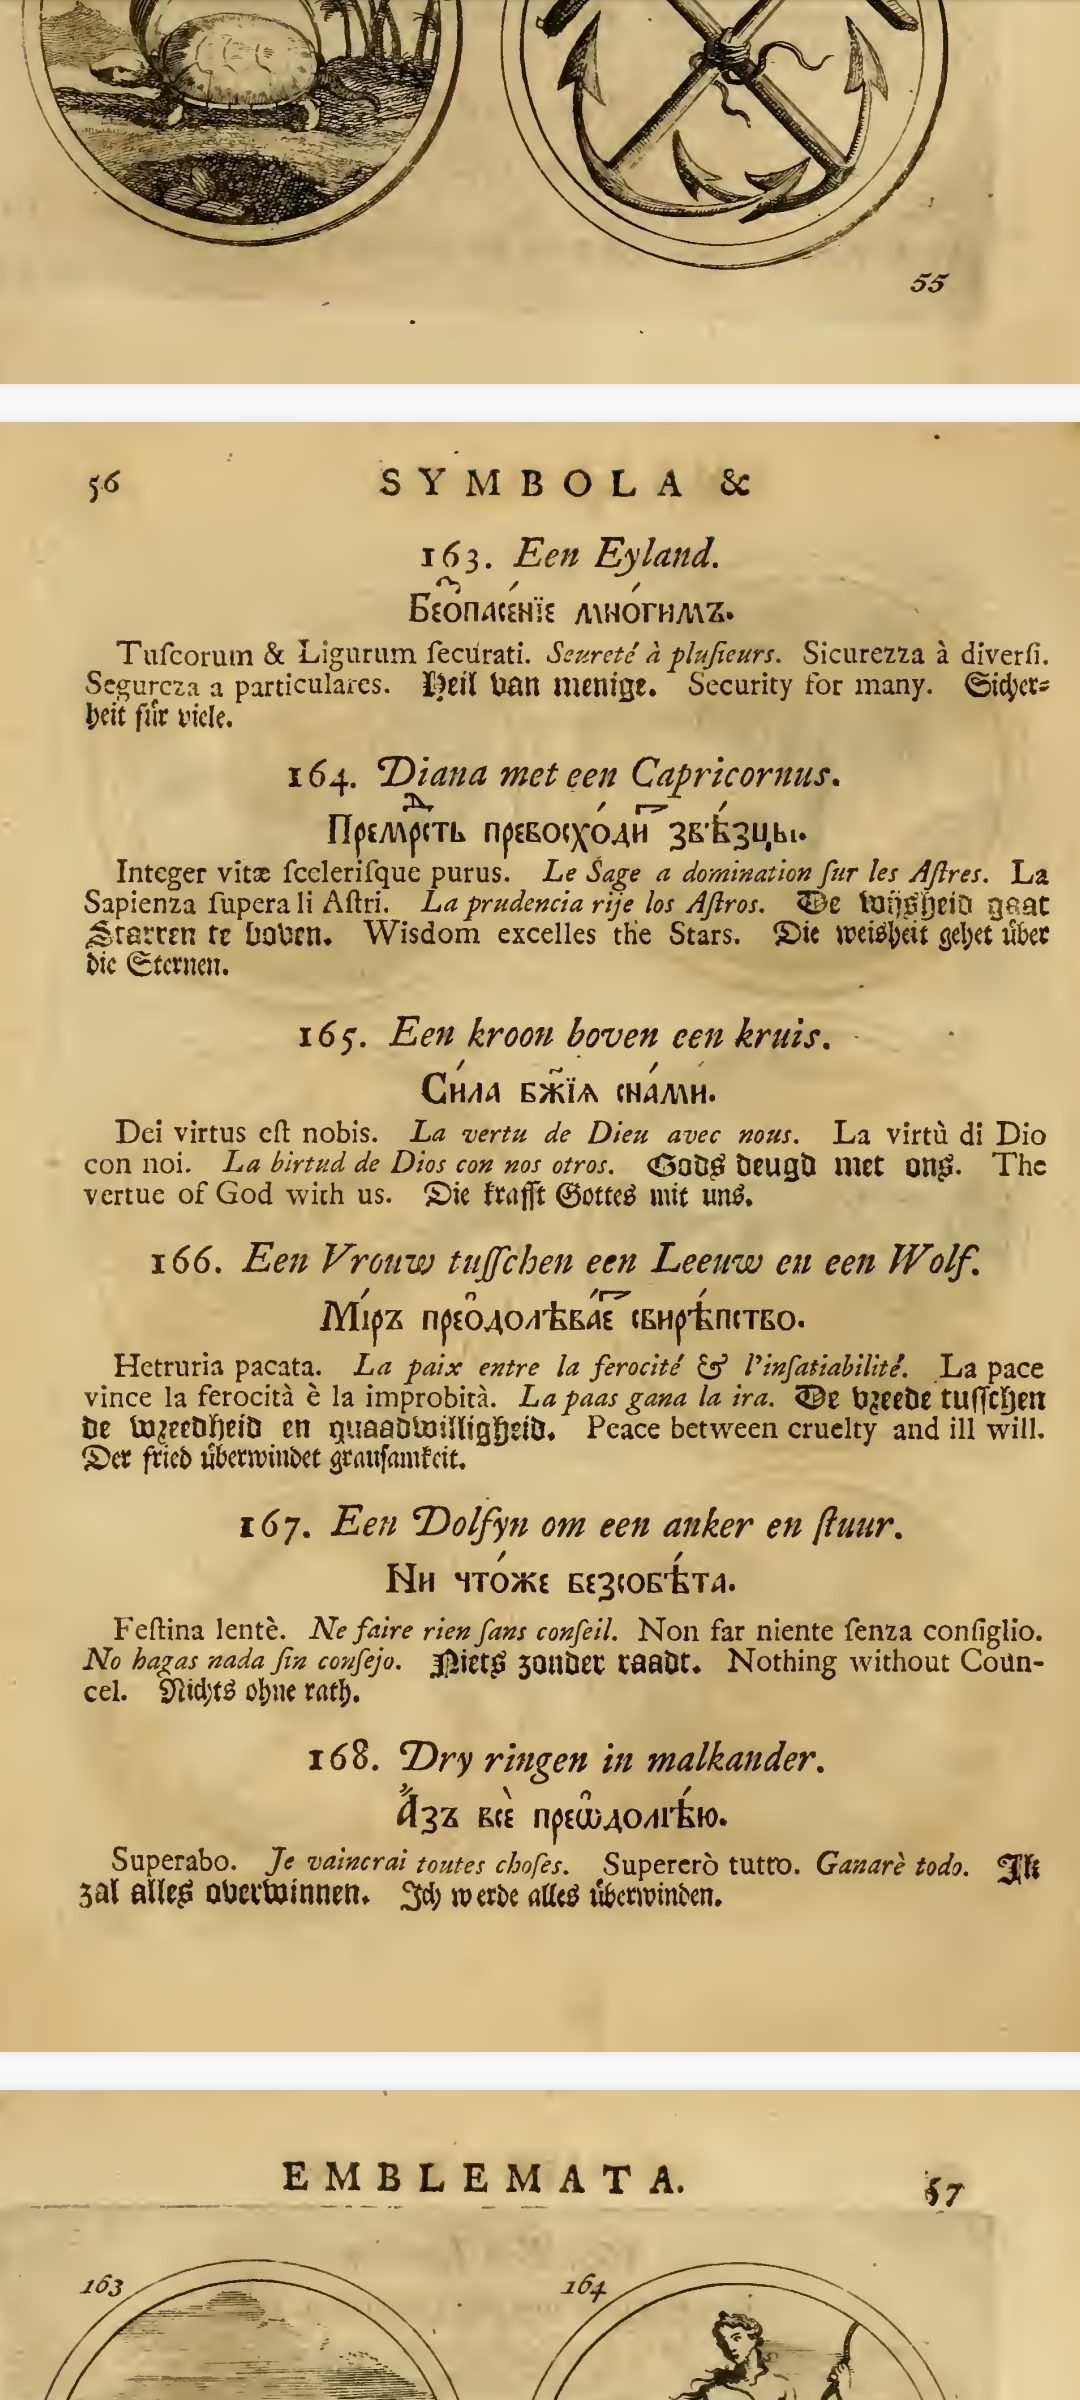 55
56 SYMBOLA &
163. Een Eyland.
Беѻпасенїе мно́гимъ.
Tuſcorum & Ligurum ſecurati. Seureté à pluſieurs. Sicurezza à diverſi.
Segureza a particulares. Heil van menige. Security for many. Sicher⸗
heit für viele.
164. Diana met een Capricornus.
Премⷣрсть превосхо́дитⸯ ѕвѣ́зцы.
Integer vitæ ſceleriſque purus. Le Sage a domination ſur les Aſtres. La
Sapienza ſupera li Aſtri. La prudencia rije los Aſtros. De wijsheid gaat
Starren te boven. Wisdom excelles the Stars. Die weisheit gehet über
die Sternen.
165. Een kroon boven een kruis.
Си́ла бж҃їѧ сна́ми.
Dei virtus eſt nobis. La vertu de Dieu avec nous. La virtù di Dio
con noi. La birtud de Dios con nos otros. Gods deugd met ons. The
vertue of God with us. Die krafft Gottes mit uns.
166. Een Vrouw tuſſchen een Leeuw en een Wolf.
Мі́ръ преѻдолѣва́етⸯ свирѣ́пство.
Hetruria pacata. La paix entre la ferocité & l'inſatiabilité. La pace
vince la ferocità è la improbità. La paas gana la ira. De vreede tuſſchen
de wreedheid en quaadwilligheid. Peace between cruelty and ill will.
Der fried überwindet grauſamkeit.
167. Een Dolfyn om een anker en ſtuur.
Ни что́же безсовѣ́та.
Feſtina lentè. Ne faire rien ſans conſeil. Non far niente ſenza conſiglio.
No hagas nada ſin conſejo. Niets zonder raadt. Nothing without Coun-
cel. Nichts ohne rath.
168. Dry ringen in malkander.
А҆́зъ всѐ преѡдолѣ́ю.
Superabo. Je vaincrai toutes choſes. Supererò tutto. Ganarè todo. Ik
zal alles overwinnen. Ich werde alles überwinden.
EMBLEMATA. 57
163 164